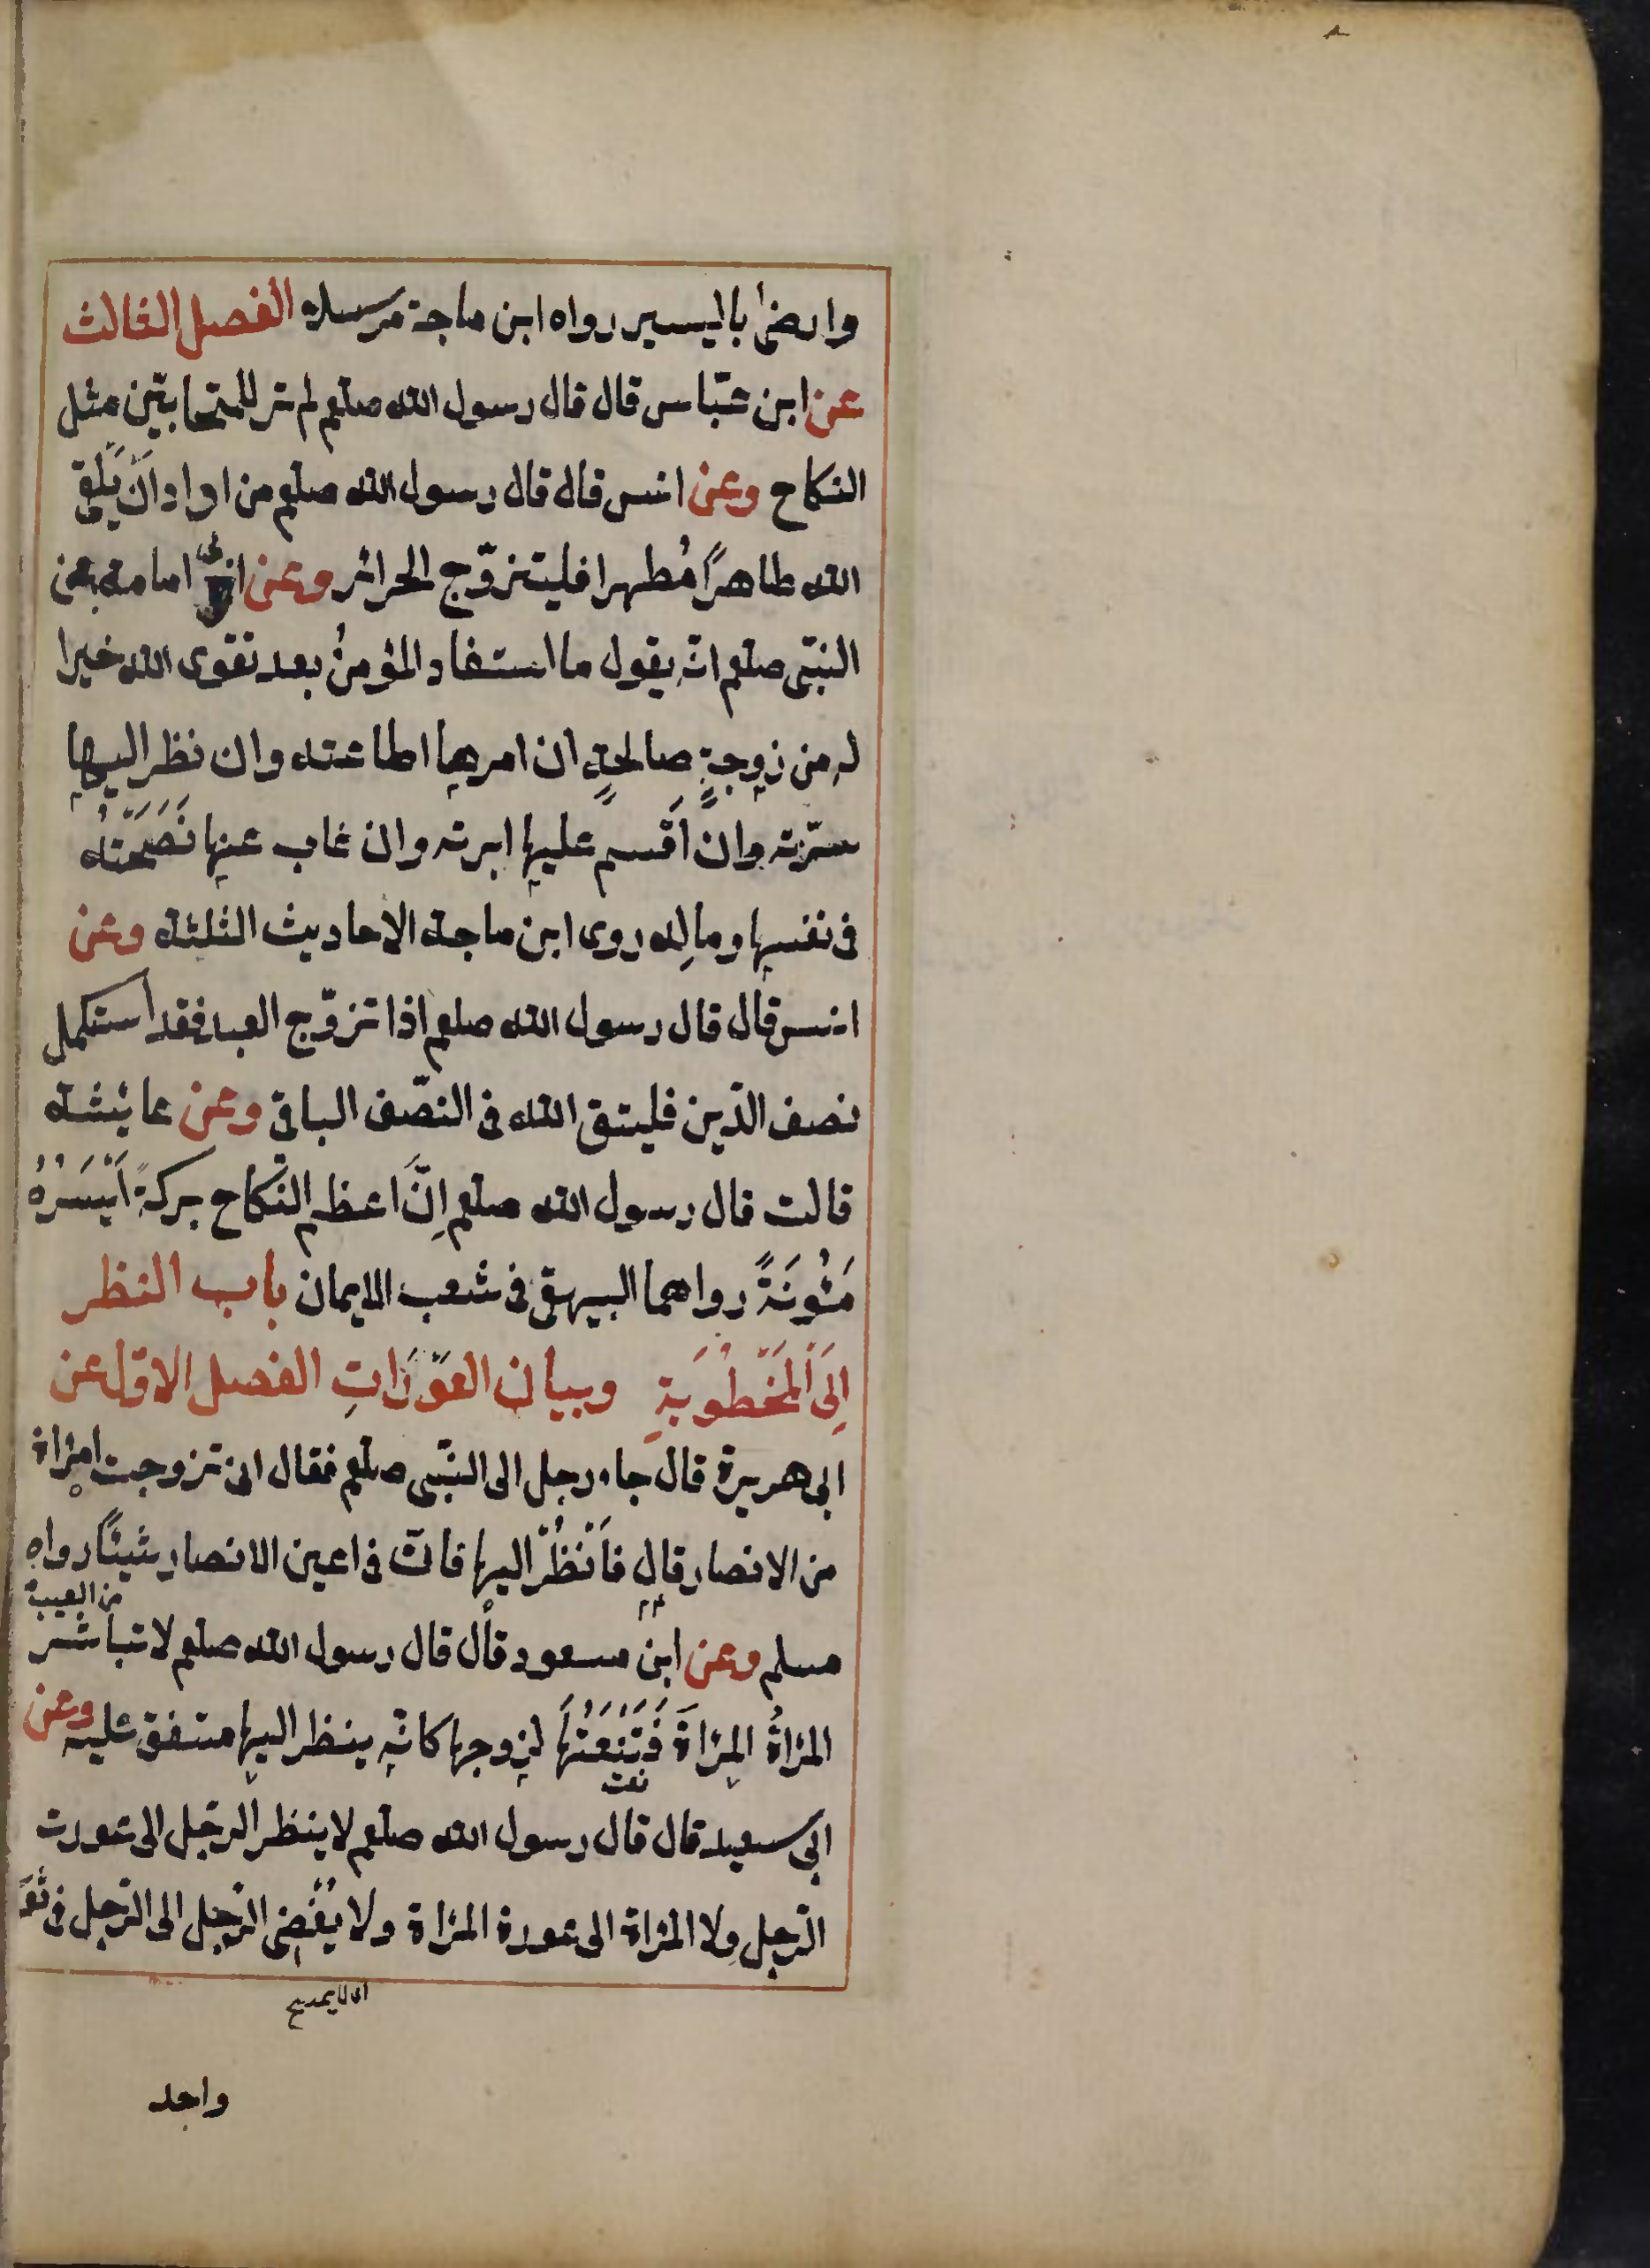 وارضىٰ باليسير رواه ابن ماجة مرسلا الفصل الثالث
عن ابن عبّاس قال قال رسول الله صلعم لم تر للمتحابّين مثل
النكاح وعن انس قال قال رسول الله صلعم من اراد اَنْ يَلْقَى
الله طاهرًا مُطهرا فليتزوّج الحرائر وعن ابى امامة عن
النبّى صلعم انّه يقول ما استفاد المؤمنُ بعد تقوى الله خيرا
له من زوجةٍ صالحةٍ ان امرها اطاعته وان نظر اليها
سرّته وان اَقسم عليها ابرته وان غاب عنها نَصَحَتْهُ
فى نفسها وماله روى ابن ماجة الاحاديث الثلثة وعن
انس قال قال رسول الله صلعم اذا تزوّج العبد فقد استكمل
نصف الدّين فليتق الله فى النصّف الباقى وعن عايشة
قالت قال رسول الله صلعم اِنَّ اعظم النّكاح بركةً اَيْسَرُهُ
مَئُونَةً رواهما البيهقى فى شعب الايمان باب النظر
اِلَى الْمَخْطُوبَةِ وبيان العَوْرَاتِ الفصل الاوّل عن
ابى هريرة قال جاء رجل الى النبّى صلعم فقال انى تزوجت امراة
من الانصار قال فاَنْظُرْ اليها فانّ فى اعين الانصار شيئًا رواه
من العيب
مسلم وعن ابن مسعود قال قال رسول الله صلعم لا تباشر
المراةُ المراةَ فَتَنْعَتُهَا لزوجها كانّه ينظر اليها متفق عليه وعن
نعت
ابى سعيد قال قال رسول الله صلعم لا ينظر الرّجل الى عورت
الرّجل ولا المراة الى عورة المراة ولا يُفْضِى الرّجل الى الرّجل فى ثَوْ
واحد